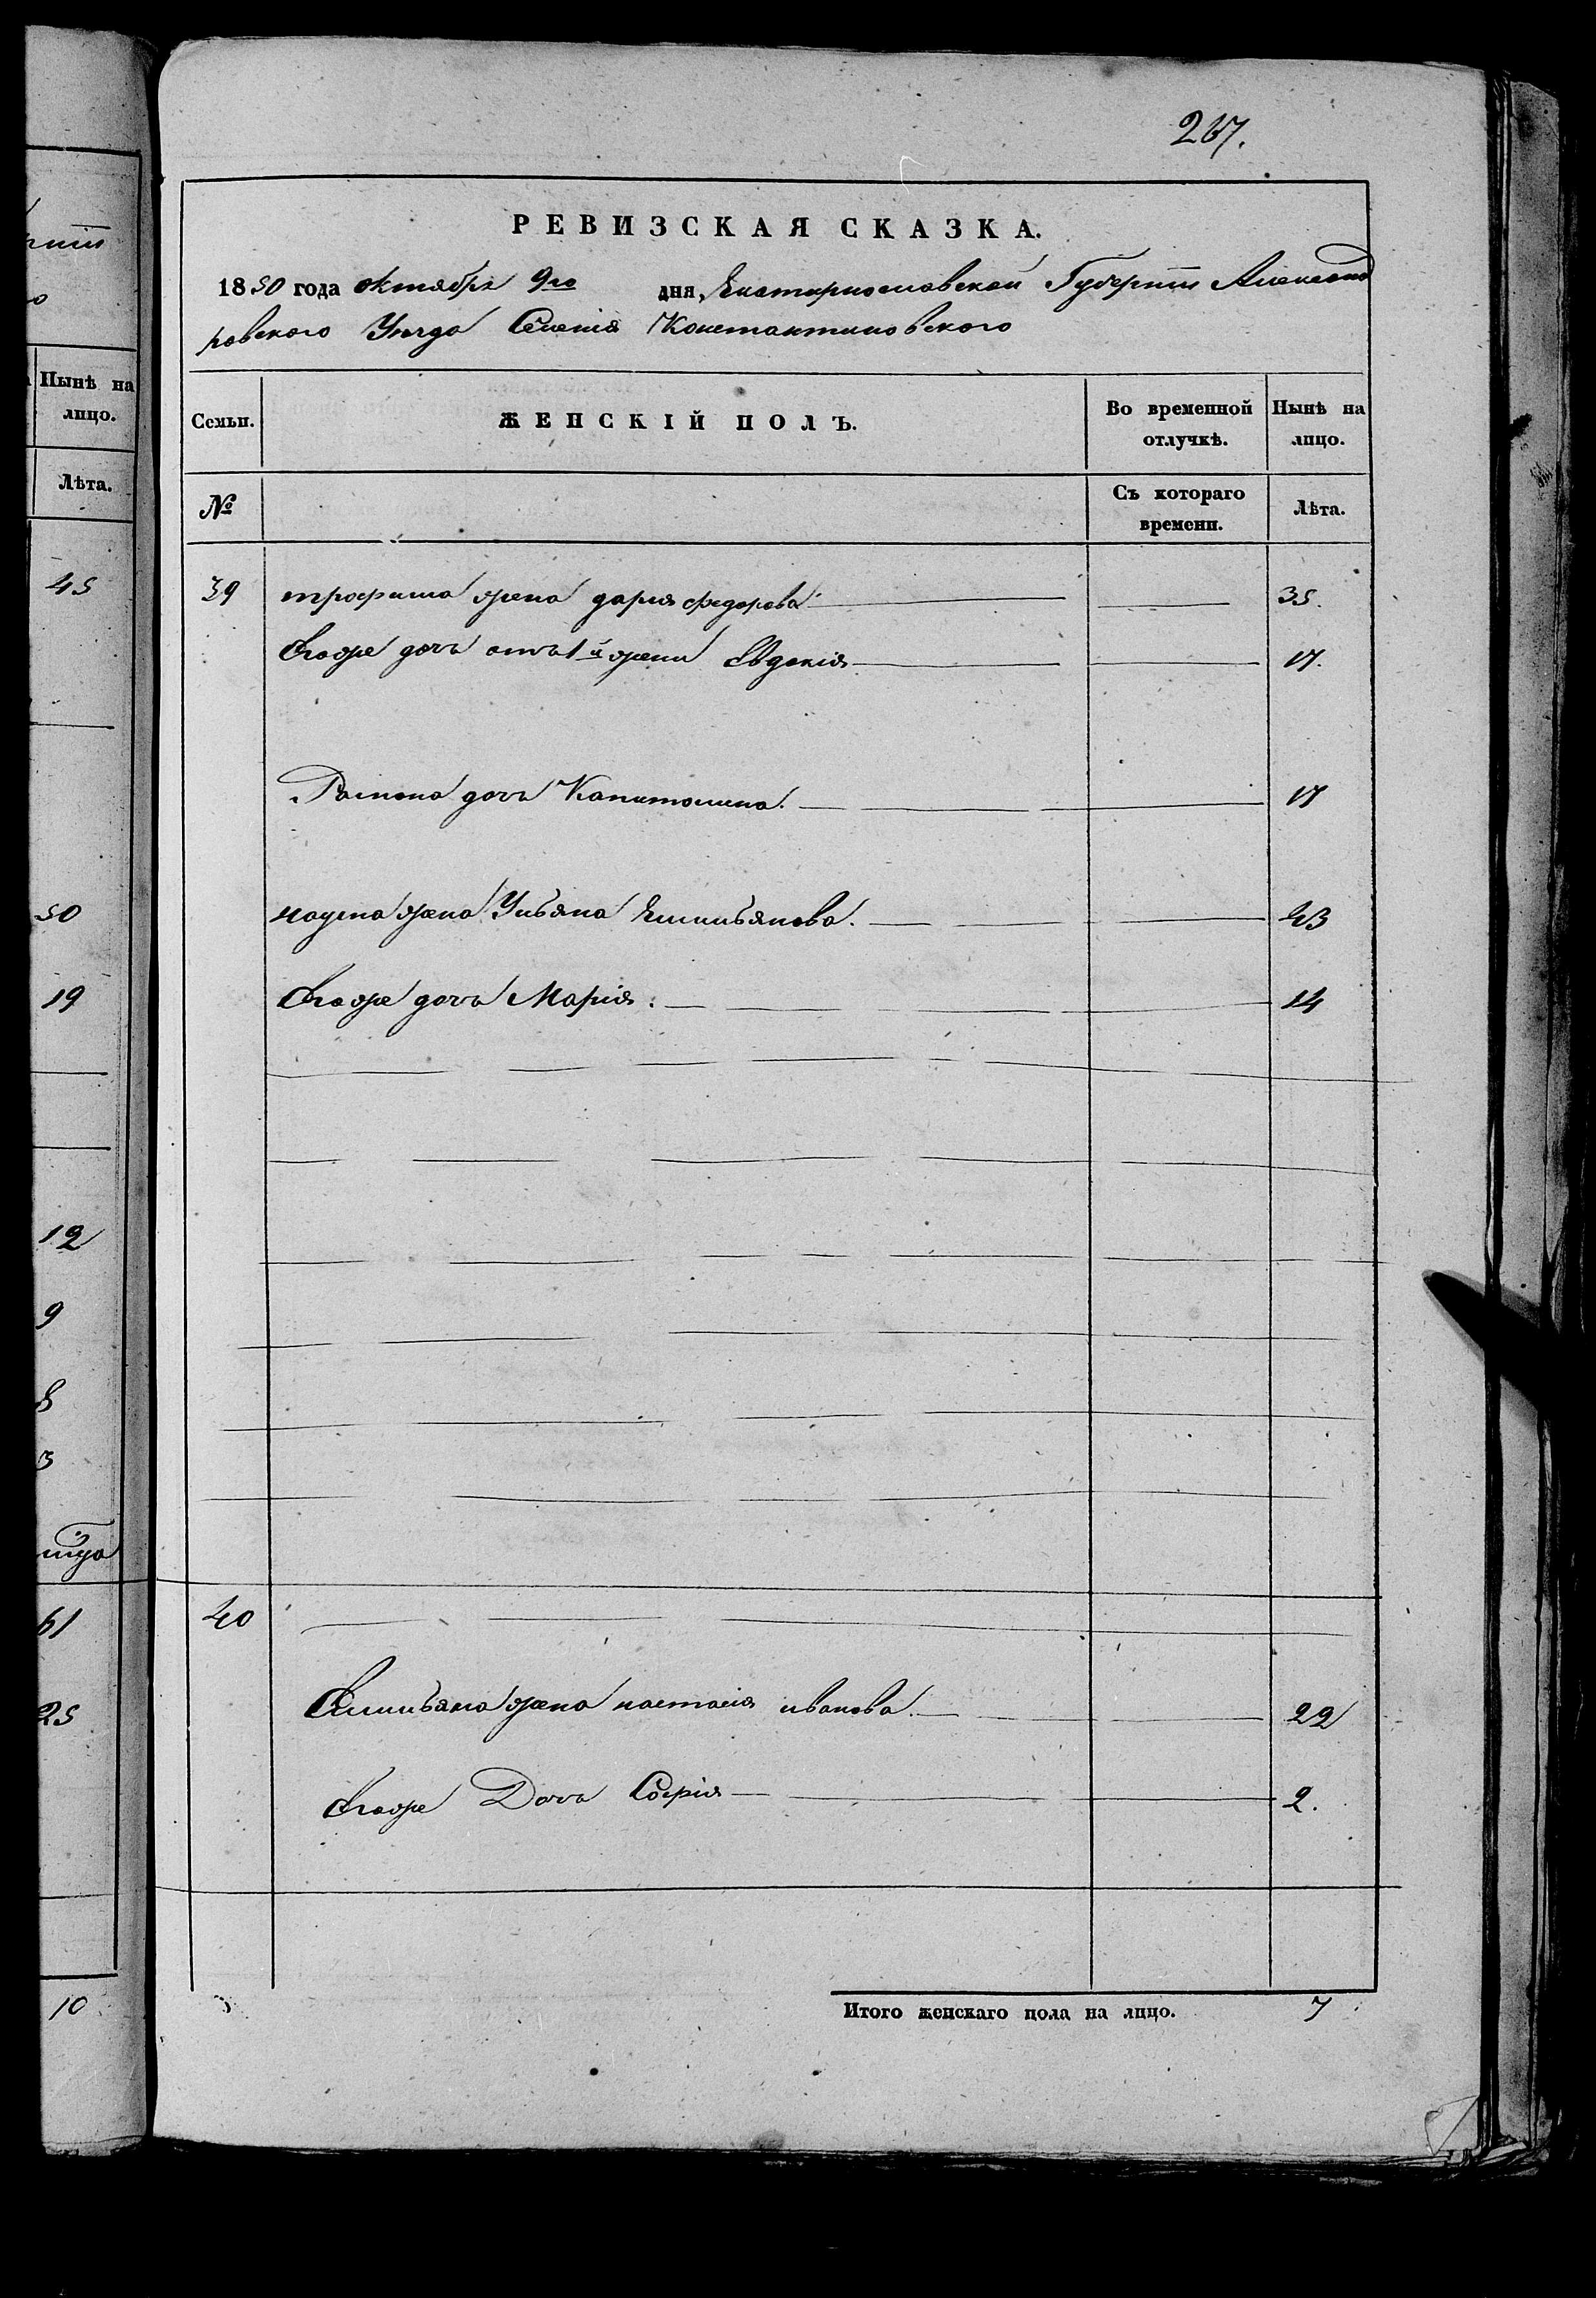 267.
РЕВИЗСКАЯ СКАЗКА.
1850 года октября 9го дня, Екатеринославской Губернiи Александ
ровского Уезда Селенiя Константиновского
Семьи. ЖЕНСКІЙ ПОЛЪ. Во временной отлучкѣ. Нынѣ на лицо.
№ Съ котораго времени. Лѣта.
39 трофима жена дария федорова 35.
Егоже дочь отъ 1й жены Евдокiя 17.
дочь Капитолина. 17
наума жена Ульяна Емильянова. 43
Егоже дочь Марiя. 14
40
Емильяна жена настасiя иванова. 22
Егоже Дочь Софiя 2.
Итого женскаго пола на лицо. 7
Нынѣ на
лицо.
Лѣта.
45
50
19
12
9
8
3
61
25
10